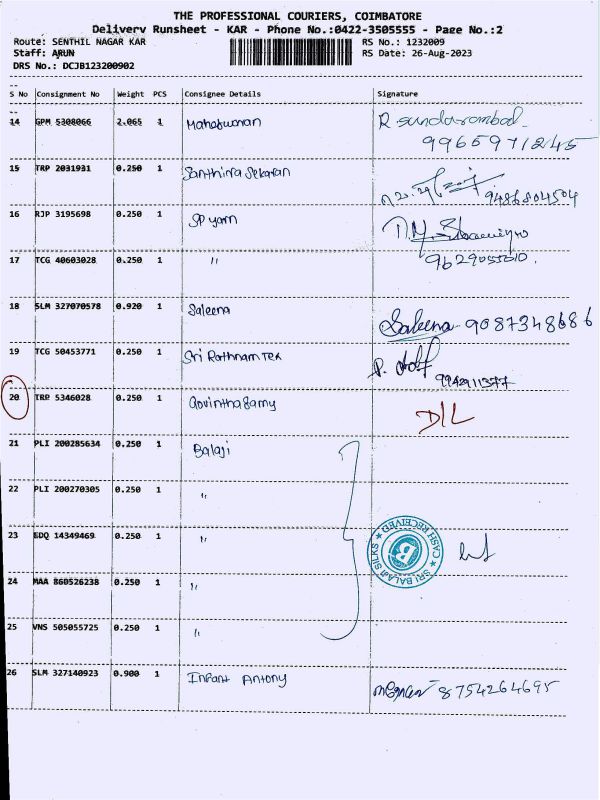 THE PROFESSIONAL COURIERS, COIMBATORE
Delivery Runsheet - KAR - Phone No.:0422-3505555 - Page No.:2
Route: SENTHIL NAGAR KAR RS No.: 1232009
Staff: ARUN RS Date: 26-Aug-2023
DRS No.: DCJB123200902
S No Consignment No Weight PCS Consignee Details Signature
14 GPM 5308066 2.065 1 R Sundarambal
9965971245
15 TRP 2031931 0.250 1 Santhira Sekaran
9486804504
16 RJP 3195698 0.250 1 SP yarn
17 TCG 40603028 0.250 1 "
18 SLM 327070578 0.920 1 Saleena Saleena 9087348686
19 TCG 50453771 0.250 1 Sri Rathnam Tex
9942911377
20 TRP 5346028 0.250 1 Govinthasamy D/L
21 PLI 200285634 0.250 1 Balaji
22 PLI 200270305 0.250 1 "
23 EDQ 14349469 0.250 1 "
SRI BALAJI SILKS ★ CASH RECEIVED ★
B
24 MAA 860526238 0.250 1 "
25 VNS 505055725 0.250 1 "
26 SLM 327140923 0.900 1 Infant Antony 8754264695